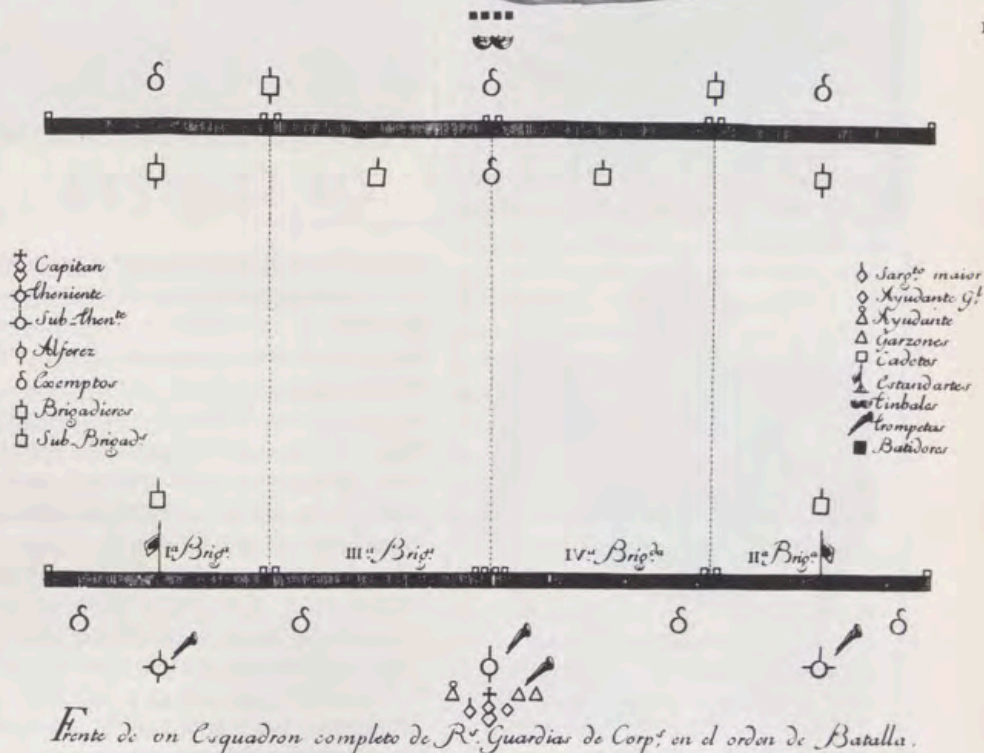 Capitan
theniente
Sub-then.te
Alferez
Exemptos
Brigadieres
Sub-Brigad.s
Sarg.to maior
Ayudante G.l
Ayudante
Garzones
Cadetes
Estandartes
tinbales
trompetas
Batidores
I.a Brig.a
III.a Brig.a
IV.a Brig.da
II.a Brig.a
Frente de vn Esquadron completo de R.s Guardias de Corp.s en el orden de Batalla.